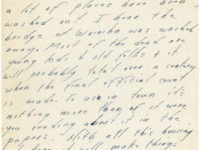 a lot of places have been
washed out I hear the
bridge at Waimha was washed
away. Most of the dead are
young kids & old folks & it
will probably total over a century
when the final official count
is made. To us in town it's
nothing more than if it were
you reading about it in the
papers. With all this housing
will make things